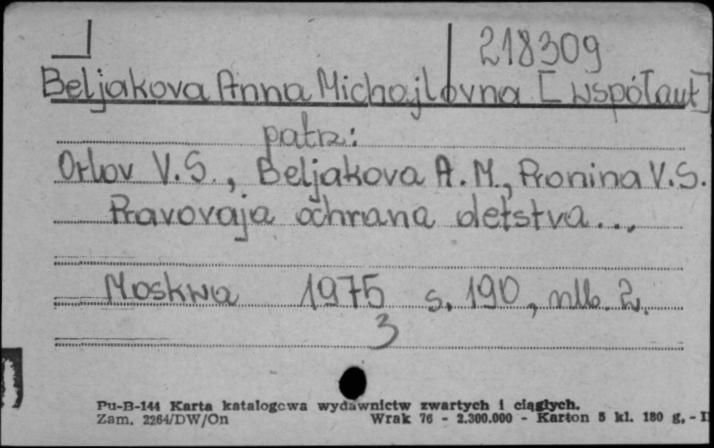 218309
Beljakova Anna Michajlovna [współaut]
patrz:
Orlov V.S., Beljakova A.M., Pronina V.S.
Pravovaja ochrana detstva...
Moskwa 1975 s. 190, nlb. 2.
3
Pu-B-144 Karta katalogowa wydawnictw zwartych i ciągłych.
Zam. 2264/DW/On Wrak 76 - 2.300.000 - Karton 5 kl. 180 g. - I